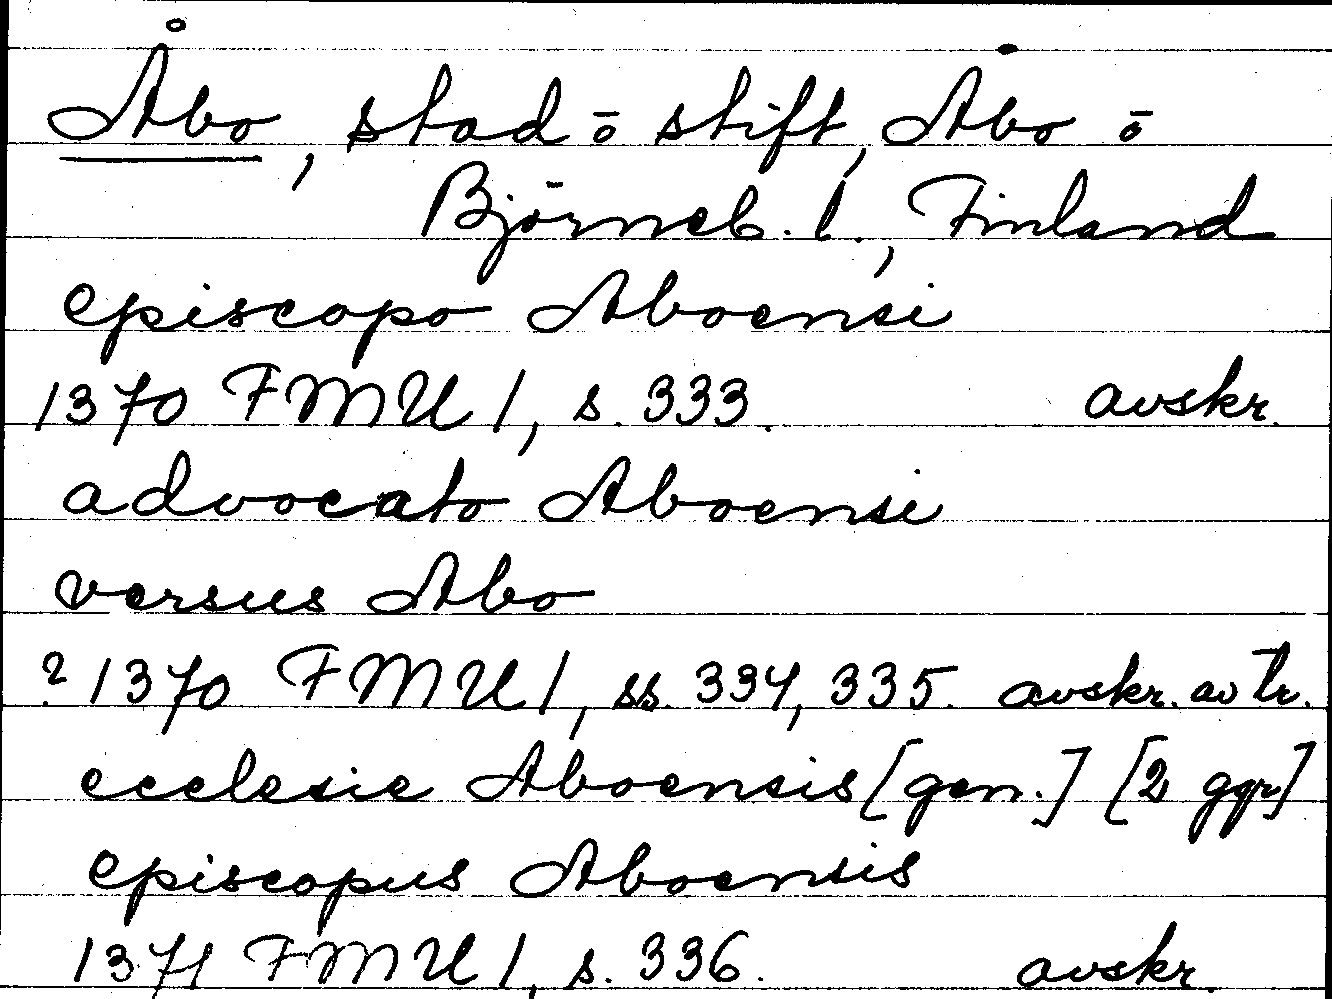 Åbo, stad ō stift, Åbo ō
Björneb. l., Finland
episcopo Aboensi
1370 FMU 1, s. 333. avskr.
advocato Aboensi
versus Abo
? 1370 FMU 1, ss. 334, 335. avskr. av tr.
ecclesie Aboensis [gen.] [2 ggr]
episcopus Aboensis
1371 FMU 1, s. 336. avskr.